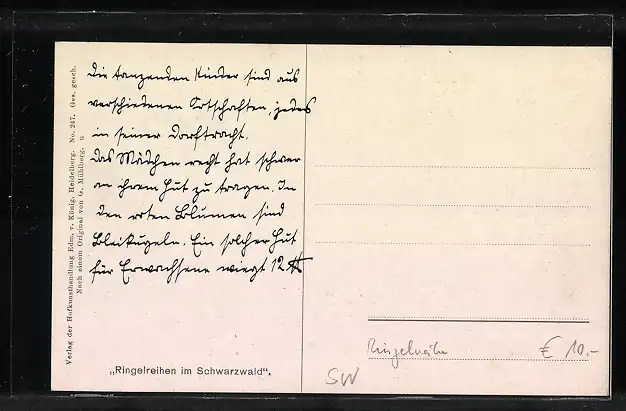 Die tanzenden Kinder sind aus
verschiedenen Ortschaften, jedes
in seiner Dorftracht.
Das Mädchen recht hat schwer
an ihrem Hut zu tragen. In
den roten Blumen sind
Bleikugeln. Ein solcher Hut
für Erwachsene wiegt 12 ℔
Verlag der Hofkunsthandlung Edm. v. König, Heidelberg. No. 247. Ges. gesch.
Nach einem Original von G. Mühlberg.
„Ringelreihen im Schwarzwald".
Ringelreihn
€ 10.-
SW